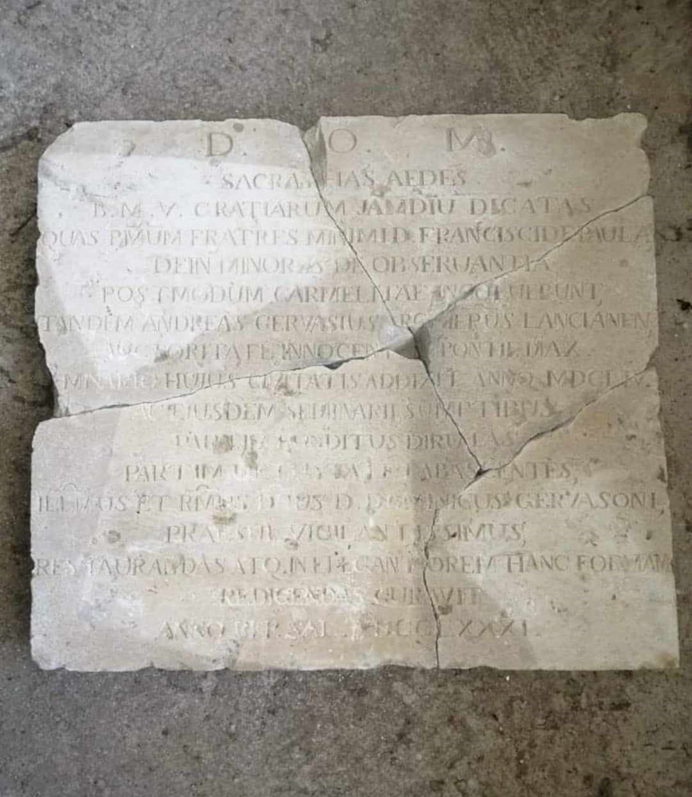 D. O. M.
SACRAS HAS AEDES
B. M. V. GRATIARUM JAMDIU DICATAS
QUAS PMUM FRATRES MINIMI D. FRANCISCI DE PAULA
DEIN MINORES DE OBSERUANTIA
POSTMODUM CARMELITAE INCOLUERUNT,
TANDEM ANDREAS GERVASIUS ARCHIEPUS LANCIANEN
AUCTORITATE INNOCEN PONT. MAX.
HUIUS CIVITATIS ADDIXIT ANNO MDCLIV.
AC EJUSDEM SEMINARII SUMPTIBUS
PARTIM FUNDITUS DIRUTAS
PARTIM VETUSTATE LABASCENTES,
ILLMUS ET RMUS DNUS D. DOMINICUS GERVASONI,
PRAESUL VIGILANTISSIMUS,
RESTAURANDAS ATQ. IN ELEGANTIOREM HANC FORMAM
REDIGENDAS CURAVIT
ANNO REP. SAL.